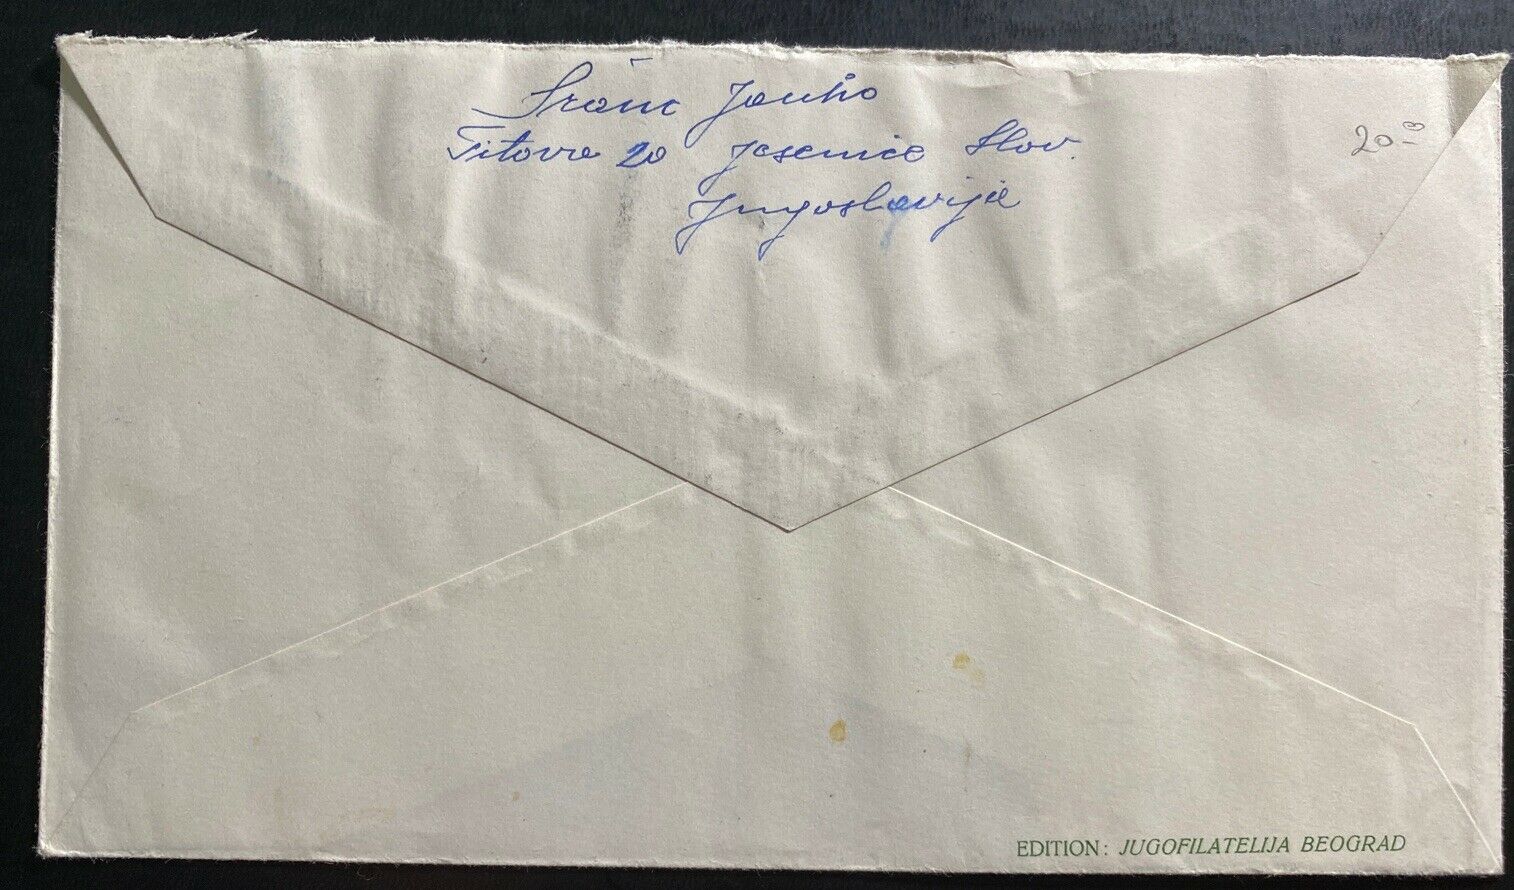 Franc Janko
Titova 20 Jesenice Slov.
Jugoslavija
20-
EDITION: JUGOFILATELIJA BEOGRAD